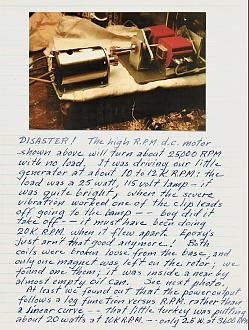 DISASTER! The high R.P.M. d.c. motor
shown above will turn about 25000 RPM
with no load. It was driving our little
generator at about 10 to 12 K RPM; the
load was a 25 watt, 115 volt lamp - it
was quite bright, when the severe
vibration worked one of the clip leads
off going to the lamp -- boy did it
take off - it must have been doing
20K R.P.M. when it flew apart. Epoxy's
just arn't good anymore! Both
coils were broken loose from the base, and
only one magnet was left on the rotor; we
found them; it was inside a near by
almost empty oil can. See next photo.
At least we found out that the power output
follows a log function versus R.P.M. rather than
a linear curve -- that little turkey was putting
about 20 watts at 10K RPM. -- only 2.5W at 3600 RPM.